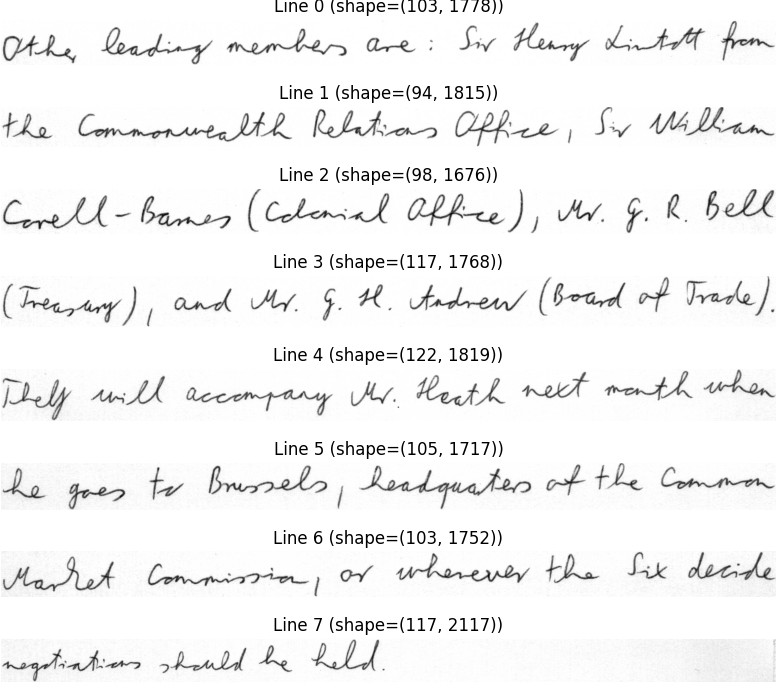 Line 0 (shape=(103, 1778))
Other leading members are : Sir Henry Lintott from
Line 1 (shape=(94, 1815))
the Commonwealth Relations Office, Sir William
Line 2 (shape=(98, 1676))
Corell-Barnes (Colonial Office), Mr. G. R. Bell
Line 3 (shape=(117, 1768))
(Treasury), and Mr. G. H. Andrew (Board of Trade).
Line 4 (shape=(122, 1819))
They will accompany Mr. Heath next month when
Line 5 (shape=(105, 1717))
he goes to Brussels, headquarters of the Common
Line 6 (shape=(103, 1752))
Market Commission, or wherever the Six decide
Line 7 (shape=(117, 2117))
negotiations should be held.